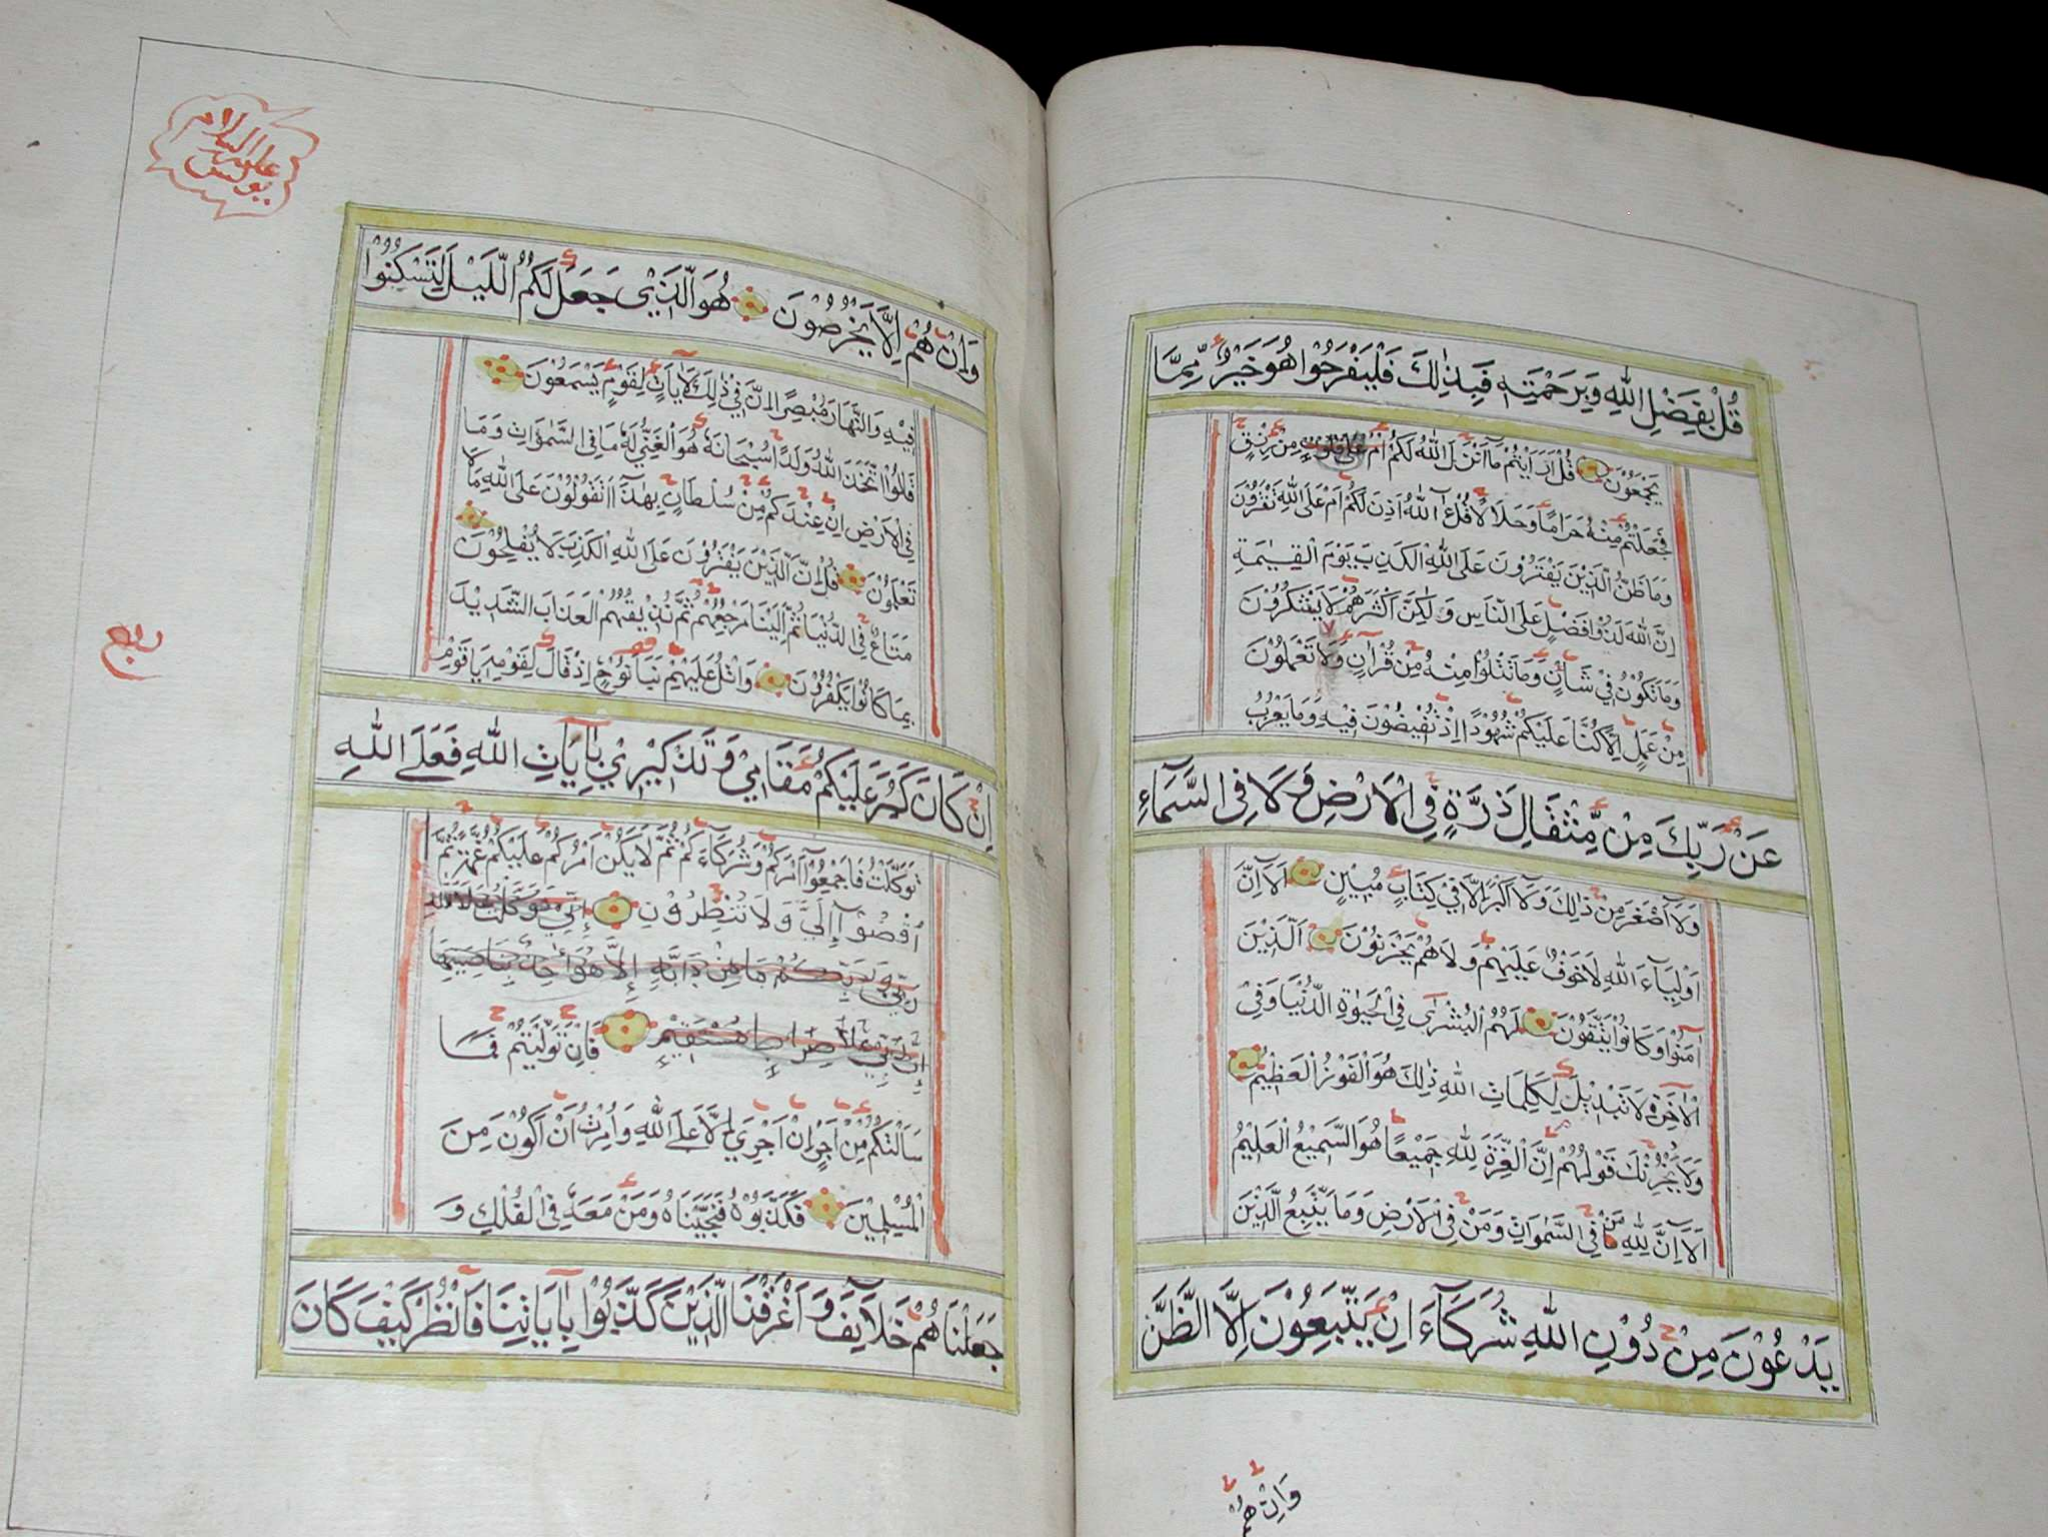 قُلْ بِفَضْلِ اللهِ وَبِرَحْمَتِهِ فَبِذٰلِكَ فَلْيَفْرَحُوا هُوَ خَيْرٌ مِمَّا
يَجْمَعُوْنَ قُلْ اَرَاَيْتُمْ مَا اَنْزَلَ اللهُ لَكُمْ مِنْ رِزْقٍ
فَجَعَلْتُمْ مِنْهُ حَرَامًا وَحَلَالًا قُلْ آللهُ اَذِنَ لَكُمْ اَمْ عَلَى اللهِ تَفْتَرُوْنَ
وَمَا ظَنُّ الَّذِيْنَ يَفْتَرُوْنَ عَلَى اللهِ الْكَذِبَ يَوْمَ الْقِيٰمَةِ
اِنَّ اللهَ لَذُوْا فَضْلٍ عَلَى النَّاسِ وَلٰكِنَّ اَكْثَرَهُمْ لَا يَشْكُرُوْنَ
وَمَا تَكُوْنُ فِيْ شَاْنٍ وَمَا تَتْلُوْا مِنْهُ مِنْ قُرْآنٍ وَلَا تَعْمَلُوْنَ
مِنْ عَمَلٍ اِلَّا كُنَّا عَلَيْكُمْ شُهُوْدًا اِذْ تُفِيْضُوْنَ فِيْهِ وَمَا يَعْزُبُ
عَنْ رَبِّكَ مِنْ مِثْقَالِ ذَرَّةٍ فِي الْاَرْضِ وَلَا فِي السَّمَاءِ
وَلَا اَصْغَرَ مِنْ ذٰلِكَ وَلَا اَكْبَرَ اِلَّا فِيْ كِتَابٍ مُبِيْنٍ اَلَا اِنَّ
اَوْلِيَاءَ اللهِ لَا خَوْفٌ عَلَيْهِمْ وَلَا هُمْ يَحْزَنُوْنَ اَلَّذِيْنَ
آمَنُوْا وَكَانُوْا يَتَّقُوْنَ لَهُمُ الْبُشْرٰى فِي الْحَيٰوةِ الدُّنْيَا وَفِيْ
الْاٰخِرَةِ لَا تَبْدِيْلَ لِكَلِمَاتِ اللهِ ذٰلِكَ هُوَ الْفَوْزُ الْعَظِيْمُ
وَلَا يَحْزُنْكَ قَوْلُهُمْ اِنَّ الْعِزَّةَ لِلّٰهِ جَمِيْعًا هُوَ السَّمِيْعُ الْعَلِيْمُ
اَلَا اِنَّ لِلّٰهِ مَنْ فِي السَّمٰوَاتِ وَمَنْ فِي الْاَرْضِ وَمَا يَتَّبِعُ الَّذِيْنَ
يَدْعُوْنَ مِنْ دُوْنِ اللهِ شُرَكَاءَ اِنْ يَتَّبِعُوْنَ اِلَّا الظَّنَّ
وَاِنْ هُمْ
يونس عليه السلام
وَاِنْ هُمْ اِلَّا يَخْرُصُوْنَ هُوَ الَّذِيْ جَعَلَ لَكُمُ الَّيْلَ لِتَسْكُنُوْا
فِيْهِ وَالنَّهَارَ مُبْصِرًا اِنَّ فِيْ ذٰلِكَ لَاٰيَاتٍ لِقَوْمٍ يَسْمَعُوْنَ
قَالُوْا اتَّخَذَ اللهُ وَلَدًا سُبْحَانَهُ هُوَ الْغَنِيُّ لَهُ مَا فِي السَّمٰوَاتِ وَمَا
فِي الْاَرْضِ اِنْ عِنْدَكُمْ مِنْ سُلْطَانٍ بِهٰذَا اَتَقُوْلُوْنَ عَلَى اللهِ مَا لَا
تَعْلَمُوْنَ قُلْ اِنَّ الَّذِيْنَ يَفْتَرُوْنَ عَلَى اللهِ الْكَذِبَ لَا يُفْلِحُوْنَ
مَتَاعٌ فِي الدُّنْيَا ثُمَّ اِلَيْنَا مَرْجِعُهُمْ ثُمَّ نُذِيْقُهُمُ الْعَذَابَ الشَّدِيْدَ
بِمَا كَانُوْا يَكْفُرُوْنَ وَاتْلُ عَلَيْهِمْ نَبَاَ نُوْحٍ اِذْ قَالَ لِقَوْمِهِ يَا قَوْمِ
اِنْ كَانَ كَبُرَ عَلَيْكُمْ مَقَامِيْ وَتَذْكِيْرِيْ بِاٰيَاتِ اللهِ فَعَلَى اللهِ
تَوَكَّلْتُ فَاَجْمِعُوْا اَمْرَكُمْ وَشُرَكَاءَكُمْ ثُمَّ لَا يَكُنْ اَمْرُكُمْ عَلَيْكُمْ غُمَّةً ثُمَّ
اُقْضُوْا اِلَيَّ وَلَا تُنْظِرُوْنِ إِنِّي تَوَكَّلْتُ عَلَى اللهِ
رَبِّي وَرَبِّكُمْ مَا مِنْ دَابَّةٍ إِلَّا هُوَ آخِذٌ بِنَاصِيَتِهَا
إِنَّ رَبِّي عَلَى صِرَاطٍ مُسْتَقِيْمٍ فَاِنْ تَوَلَّيْتُمْ فَمَا
سَاَلْتُكُمْ مِنْ اَجْرٍ اِنْ اَجْرِيَ اِلَّا عَلَى اللهِ وَاُمِرْتُ اَنْ اَكُوْنَ مِنَ
الْمُسْلِمِيْنَ فَكَذَّبُوْهُ فَنَجَّيْنَاهُ وَمَنْ مَعَهُ فِي الْفُلْكِ وَ
جَعَلْنَاهُمْ خَلَائِفَ وَاَغْرَقْنَا الَّذِيْنَ كَذَّبُوْا بِاٰيَاتِنَا فَانْظُرْ كَيْفَ كَانَ